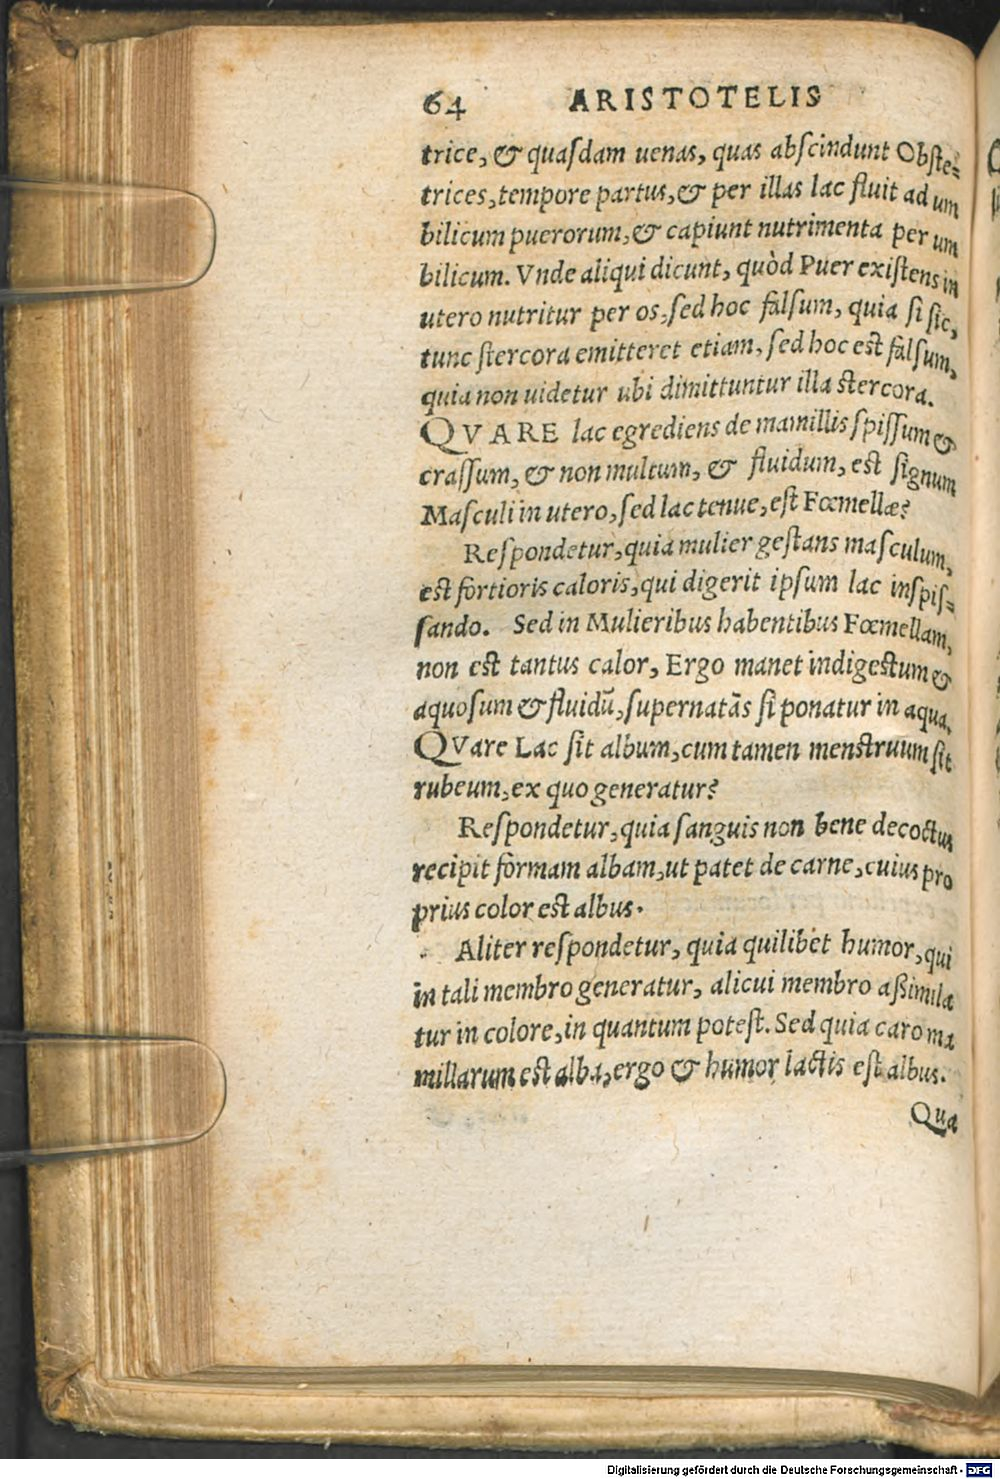 64 ARISTOTELIS
trice, & quasdam uenas, quas abscindunt Obste-
trices, tempore partus, & per illas lac fluit ad um
bilicum puerorum, & capiunt nutrimenta per um
bilicum. Vnde aliqui dicunt, quòd Puer existens in
utero nutritur per os, sed hoc falsum, quia si sic,
tunc stercora emitteret etiam, sed hoc est falsum,
quia non uidetur ubi dimittuntur illa stercora.
QVARE lac egrediens de mamillis spissum &
crassum, & non multum, & fluidum, est signum
Masculi in utero, sed lac tenue, est Fœmellæ?
Respondetur, quia mulier gestans masculum,
est fortioris caloris, qui digerit ipsum lac inspis-
sando. Sed in Mulieribus habentibus Fœmellam,
non est tantus calor, Ergo manet indigestum &
aquosum & fluidũ, supernatãs si ponatur in aqua.
QVare Lac sit album, cum tamen menstruum sit
rubeum, ex quo generatur?
Respondetur, quia sanguis non bene decoctus
recipit formam albam, ut patet de carne, cuius pro
prius color est albus.
Aliter respondetur, quia quilibet humor, qui
in tali membro generatur, alicui membro aßimila
tur in colore, in quantum potest. Sed quia caro ma
millarum est alba, ergo & humor lactis est albus.
Qua
Digitalisierung gefördert durch die Deutsche Forschungsgemeinschaft - DFG